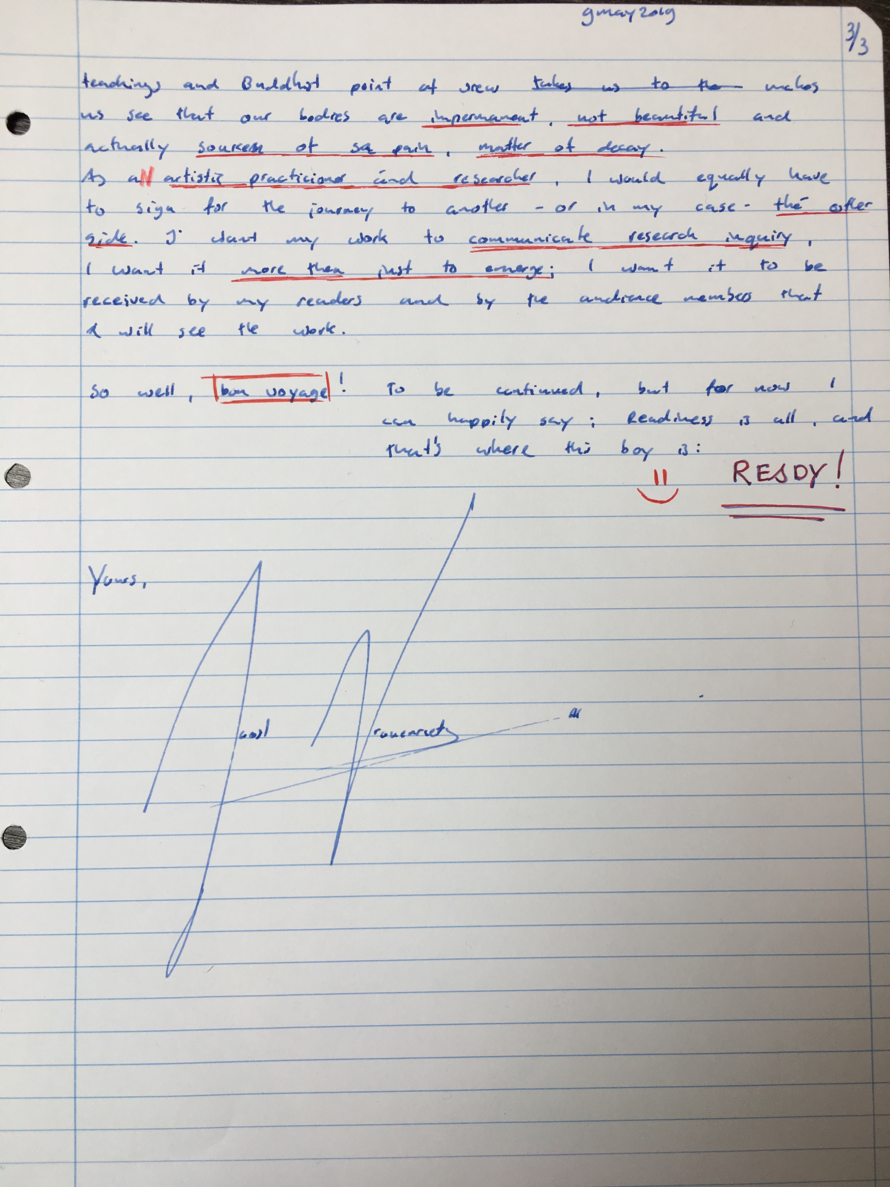 9may2019
3/3
teachings and Buddhist point of view takes us to the makes
us see that our bodies are impermanent, not beautiful and
actually sources of sa pain, matter of decay.
As aN artistic practicioner and researcher, I would equally have
to sign for the journey to another - or in my case - the other
side. I want my work to communicate research inquiry,
I want it more then just to emerge; I want it to be
received by my readers and by the audience members that
will see the work.
So well, bon voyage! To be continued, but for now I
can happily say; Readiness is all, and
that's where this boy is:
READY!
Yours,